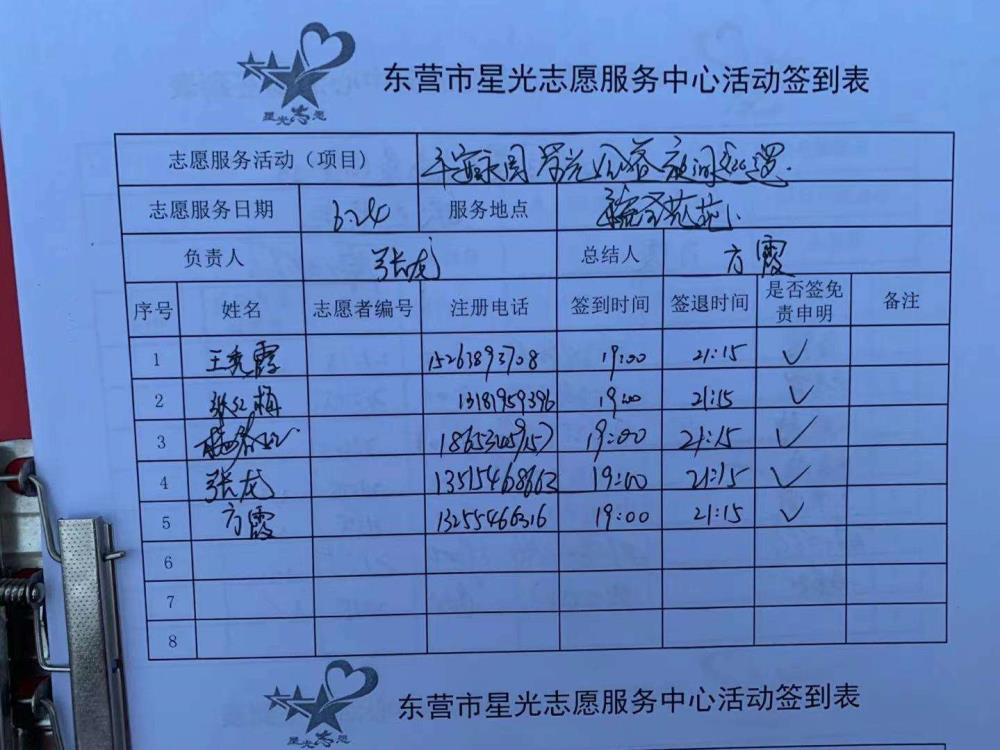 东营市星光志愿服务中心活动签到表
星光志愿
志愿服务活动（项目） 平安家园 星光公安夜间巡逻
志愿服务日期 3.24 服务地点
负责人 张龙 总结人 方霞
序号 姓名 志愿者编号 注册电话 签到时间 签退时间 是否签免责申明 备注
1 王秀霞 15263893708 19:00 21:15 ✓
2 张红梅 13181959396 19:00 21:15 ✓
3 19:00 21:15 ✓
4 张龙 13515468663 19:00 21:15 ✓
5 方霞 13255466316 19:00 21:15 ✓
6
7
8
东营市星光志愿服务中心活动签到表
星光志愿